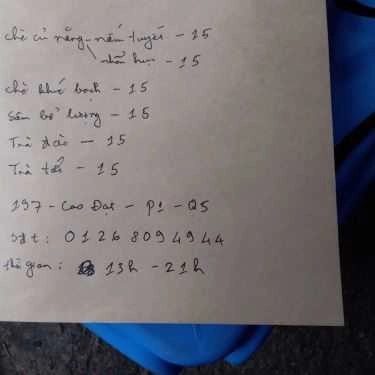 chè củ năng - nấm tuyết - 15
nhãn nhục - 15
chè khúc bạch - 15
Sâm bổ lượng - 15
Trà đào - 15
Trà tắc - 15
197 - Cao Đạt - P1 - Q5
sđt : 01268094944
thời gian : 13h - 21h